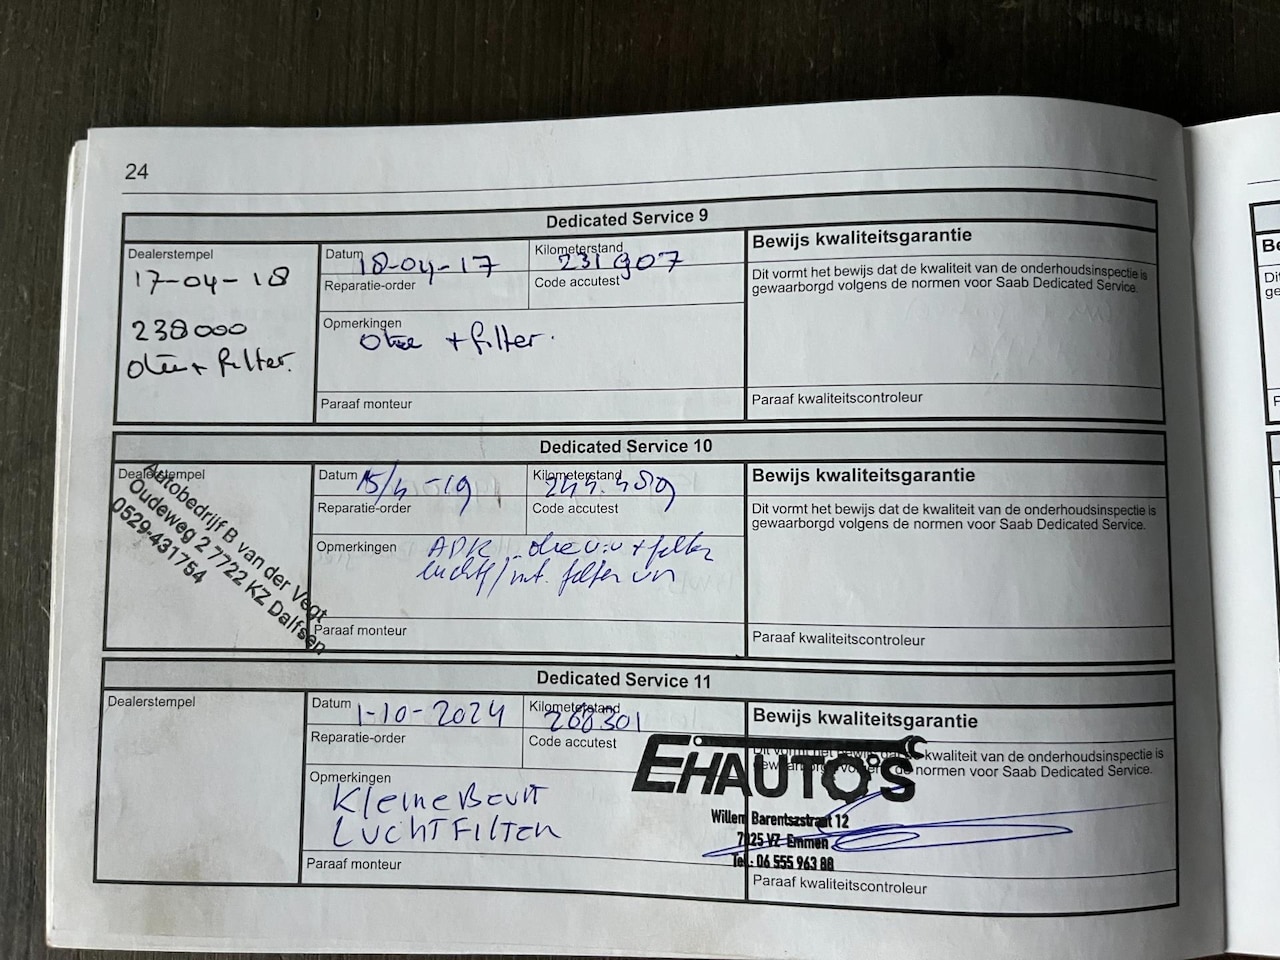 24
Dedicated Service 9
Dealerstempel
17-04-18
238000
Olie + filter.
Datum 18-04-17
Kilometerstand 231907
Reparatie-order
Code accutest
Opmerkingen
Olie + filter.
Paraaf monteur
Bewijs kwaliteitsgarantie
Dit vormt het bewijs dat de kwaliteit van de onderhoudsinspectie is
gewaarborgd volgens de normen voor Saab Dedicated Service.
Paraaf kwaliteitscontroleur
Dedicated Service 10
Dealerstempel
Autobedrijf B van der Vegt
Oudeweg 2 7722 KZ Dalfsen
0529-431754
Datum 15/4-19
Kilometerstand
Reparatie-order
Code accutest
Opmerkingen
APK olie + filter
lucht/int. filter
Paraaf monteur
Bewijs kwaliteitsgarantie
Dit vormt het bewijs dat de kwaliteit van de onderhoudsinspectie is
gewaarborgd volgens de normen voor Saab Dedicated Service.
Paraaf kwaliteitscontroleur
Dedicated Service 11
Dealerstempel
Datum 1-10-2024
Kilometerstand 268301
Reparatie-order
Code accutest
Opmerkingen
Kleine Beurt
Luchtfilter
Paraaf monteur
Bewijs kwaliteitsgarantie
Dit vormt het bewijs dat de kwaliteit van de onderhoudsinspectie is
gewaarborgd volgens de normen voor Saab Dedicated Service.
EHAUTO'S
Willem Barentszstraat 12
7825 VZ Emmen
Tel.: 06 555 963 88
Paraaf kwaliteitscontroleur